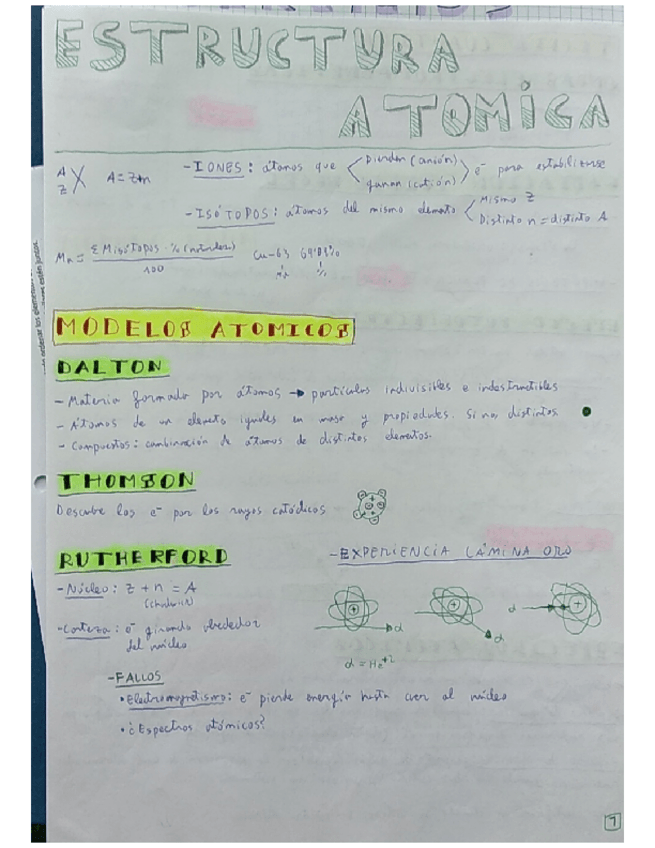 ESTRUCTURA
ATOMICA
A
Z X A=Z+n
-IONES: átomos que < pierden (anión) ganan (catión) > e⁻ para estabilizarse
-ISÓTOPOS: átomos del mismo elemento < Mismo Z
Distinto n = distinto A
Mₐ = Σ Misótopos · % /100 Cu-63 69'09%
Mₐ %
MODELOS ATOMICOS
DALTON
- Materia formado por átomos → partículas indivisibles e indestructibles
- Átomos de un elemento iguales en masa y propiedades. Si no, distintos
- Compuestos: combinación de átomos de distintos elementos.
THOMSON
Descubre los e⁻ por los rayos catódicos
RUTHERFORD
-EXPERIENCIA LÁMINA ORO
-Núcleo: Z + n = A
(Chadwick)
-Corteza: e⁻ girando alrededor
del núcleo
α α α
α = He⁺²
-FALLOS
• Electromagnetismo: e⁻ pierde energía hasta caer al núcleo
• ¿Espectros atómicos?
1